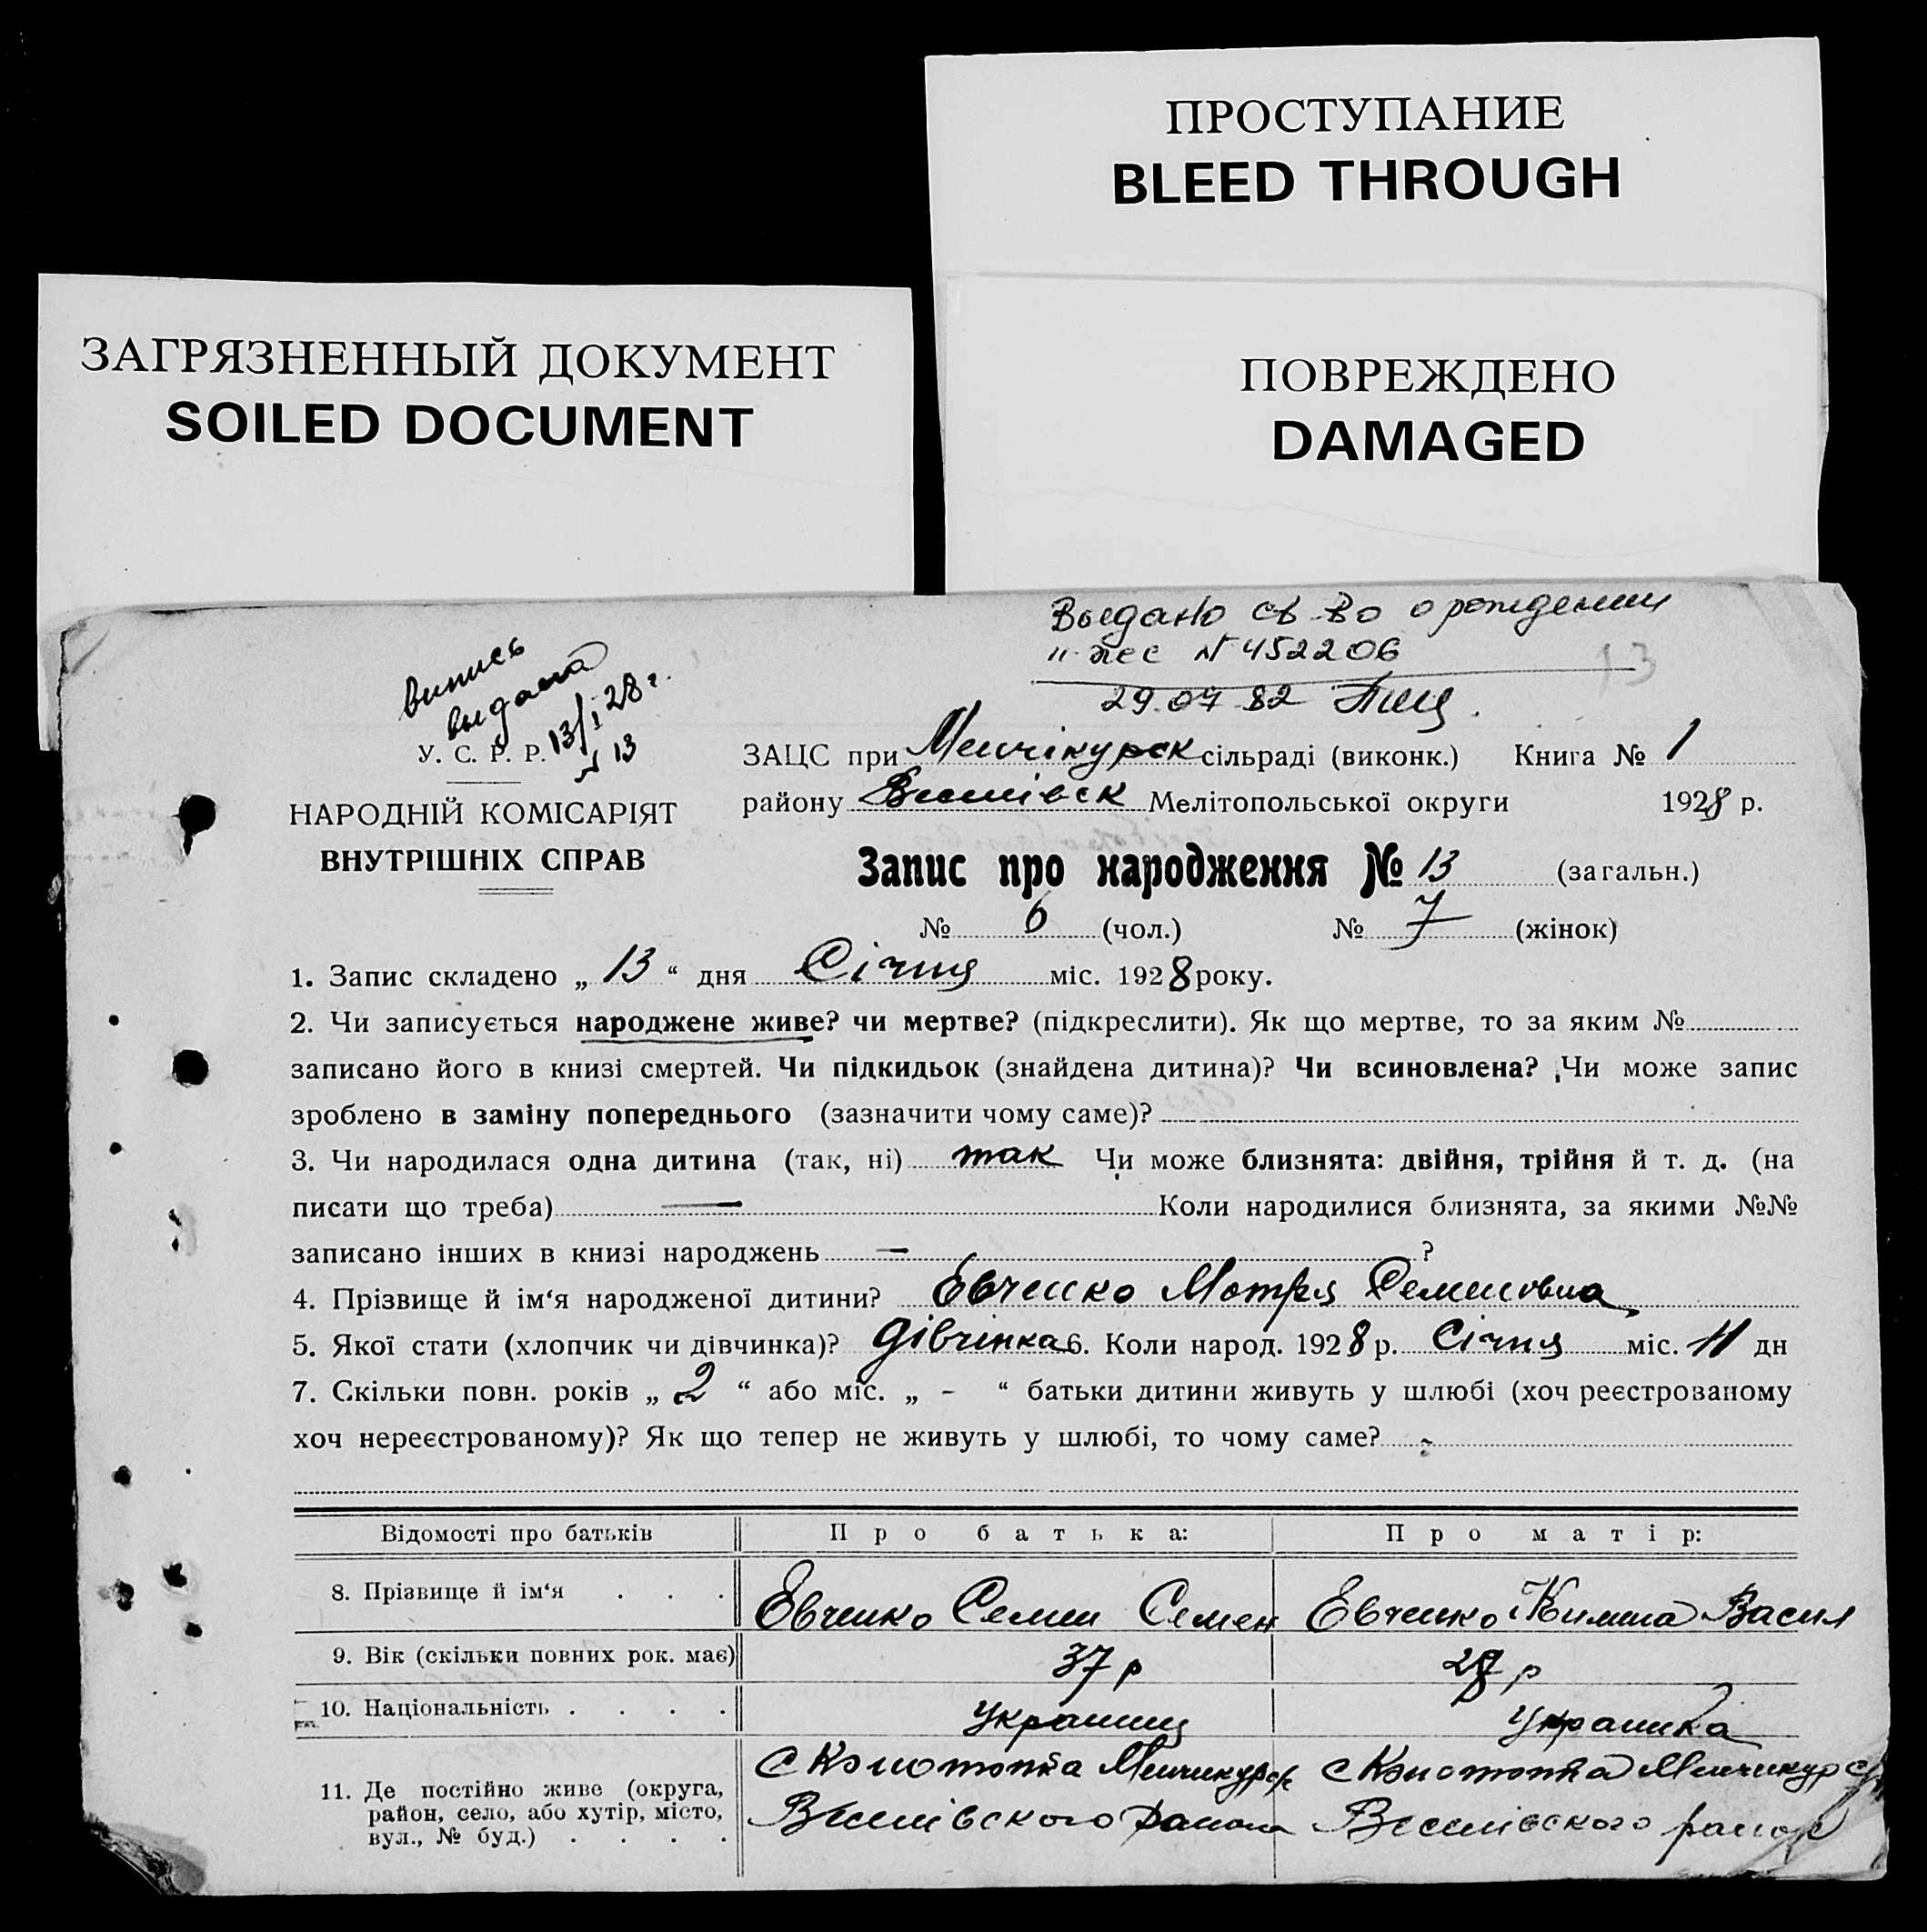 ПРОСТУПАНИЕ
BLEED THROUGH
ЗАГРЯЗНЕННЫЙ ДОКУМЕНТ
SOILED DOCUMENT
ПОВРЕЖДЕНО
DAMAGED
Выдано св-во о рождении
№ 452206
13
29.07.82
випись
выдана
13/I 28 г.
№ 13
У. С. Р. Р.
НАРОДНІЙ КОМІСАРІЯТ
ВНУТРІШНІХ СПРАВ
ЗАЦС при Менчікурск сільраді (виконк.) Книга № 1
району Веселівск Мелітопольської округи 1928 р.
Запис про народження № 13 (загальн.)
№ 6 (чол.) № 7 (жінок)
1. Запис складено „ 13 “ дня Січня міс. 1928 року.
2. Чи записується народжене живе? чи мертве? (підкреслити). Як що мертве, то за яким №
записано його в книзі смертей. Чи підкидьок (знайдена дитина)? Чи всиновлена? Чи може запис
зроблено в заміну попереднього (зазначити чому саме)?
3. Чи народилася одна дитина (так, ні) так Чи може близнята: двійня, трійня й т. д. (на
писати що треба) — Коли народилися близнята, за якими №№
записано інших в книзі народжень — ?
4. Прізвище й ім‘я народженої дитини? Євченко Мотря Семеновна
5. Якої стати (хлопчик чи дівчинка)? дівчінка 6. Коли народ. 1928 р. Січня міс. 11 дн
7. Скільки повн. років „ 2 “ або міс. „ - “ батьки дитини живуть у шлюбі (хоч реєстрованому
хоч нереєстрованому)? Як що тепер не живуть у шлюбі, то чому саме? -
Відомості про батьків Про батька: Про матір:
8. Прізвище й ім‘я . . . Євченко Семен Семен Євченко Васил
9. Вік (скільки повних рок. має) 37 р 28 р
10. Національність . . . . Українец Українка
11. Де постійно живе (округа,
район, село, або хутір, місто,
вул., № буд.) . . . .
с Конотопка Менчикурск
Веселівского району
с Конотопка Менчикурск
Веселівского району